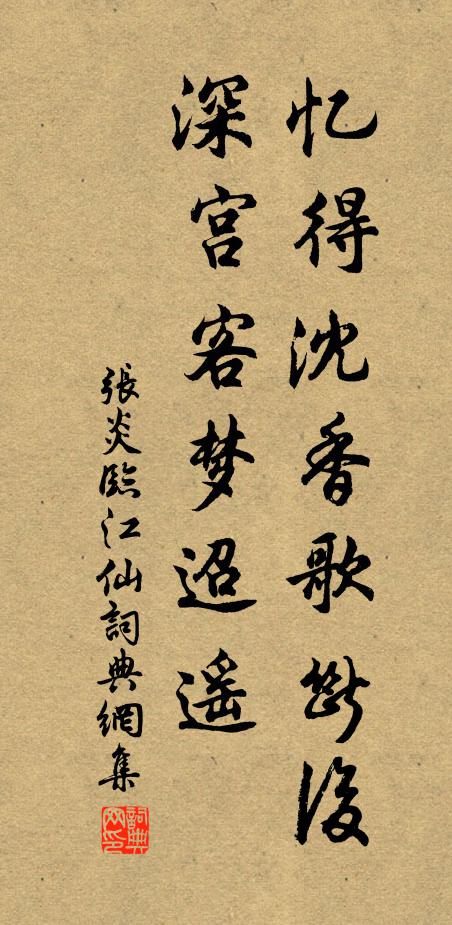 忆得沈香歌断后
深宫客梦迢遥
張炎臨江仙詞典網集
詞典网印